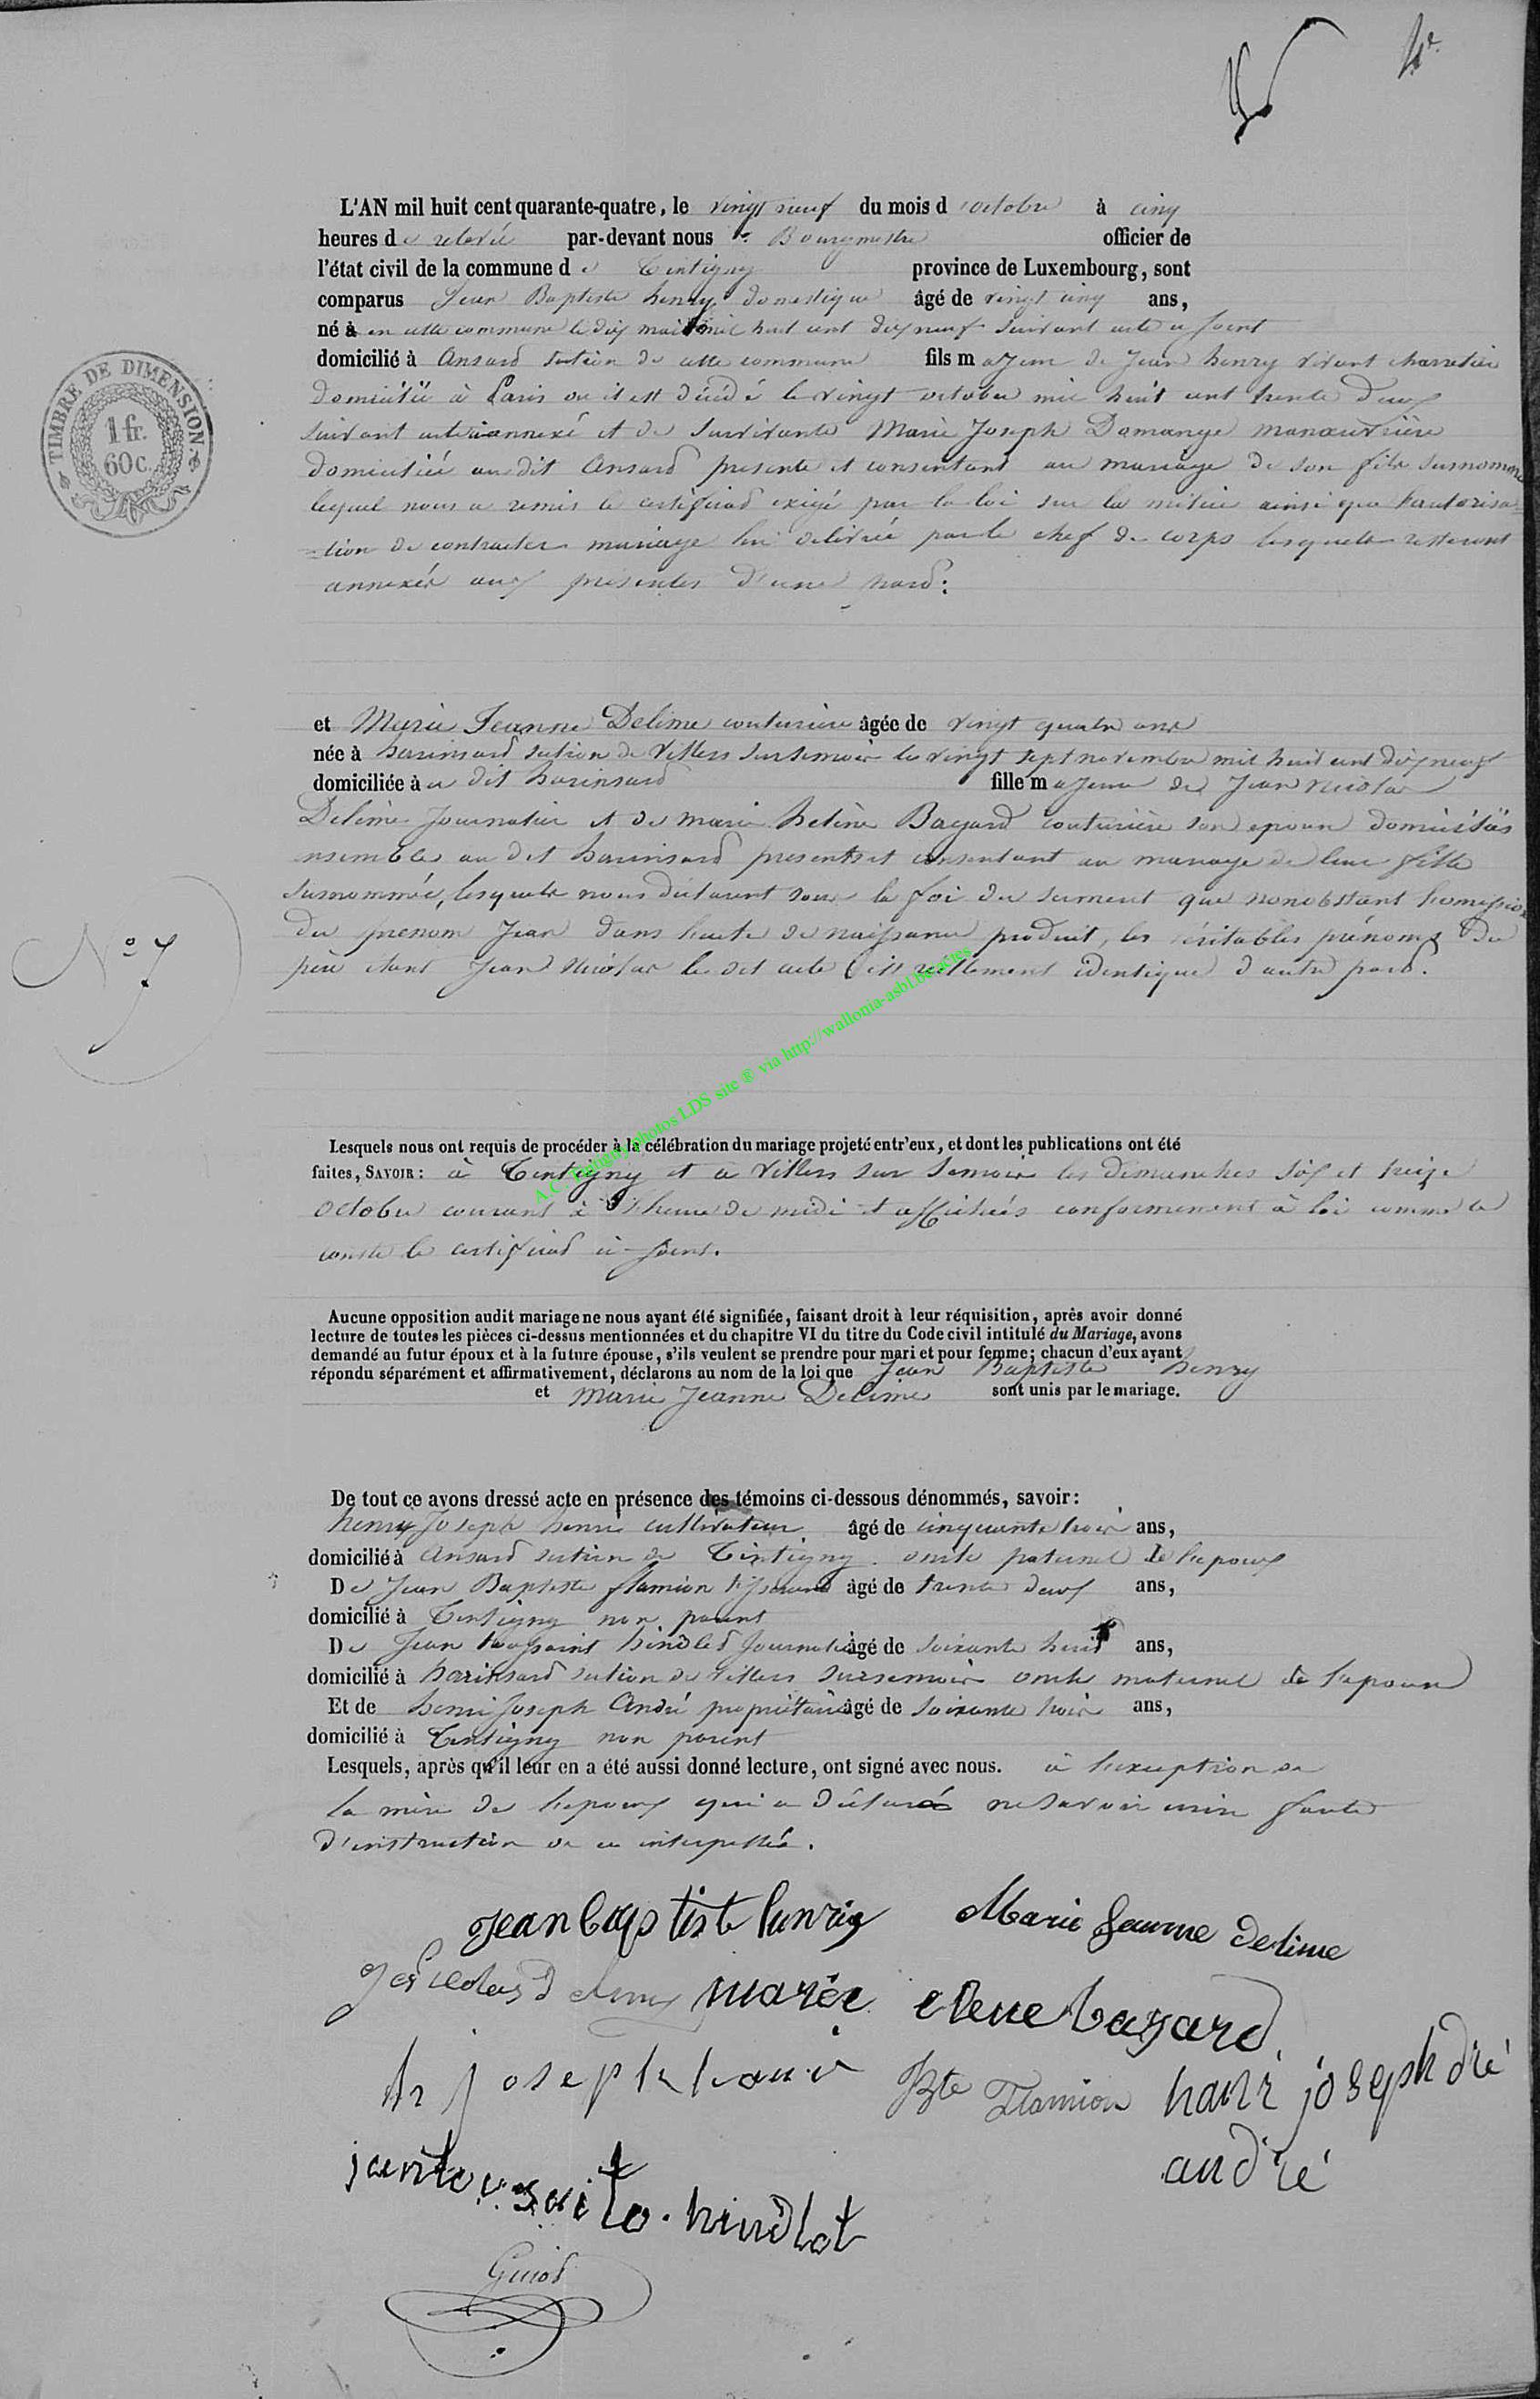 4e
L'AN mil huit cent quarante-quatre, le vingt neuf du mois d'octobre à cinq
heures de relevée par-devant nous Bourgmestre officier de
l'état civil de la commune de Tintigny province de Luxembourg, sont
comparus Jean Baptiste henry domestique âgé de vingt cinq ans,
né à en cette commune le dix mai mil huit cent dix neuf suivant acte ci joint
domicilié à Ansard section de cette commune fils majeur de Jean henry vivant charretier
domicilié à Paris ou il est décédé le vingt octobre mil huit cent trente deux
suivant acte ci annexé et de survivante Marie Joseph Domange manoeuvrière
domiciliée au dit Ansard presente et consentant au mariage de son fils surnommé
lequel nous a remis le certificat exigé par la loi sur la milice ainsi que l'autorisa-
-tion de contracter mariage lui delivrée par le chef de corps lesquelles resteront
annexés aux présentes d'une part:
et Marie Jeanne Delime couturière âgée de vingt quatre ans
née à harinsard section de Villers sur semois le vingt sept novembre mil huit cent dix neuf
domiciliée à au dit harinsard fille majeure de Jean Nicolas
Delime Journalier et de marie helène Bayard couturière son epouse domiciliés
ensemble au dit harinsard presents et consentant au mariage de leur fille
surnommée, lesquels nous déclarent sous la foi du serment que nonobstant l'omission
du prenom Jean dans l'acte de naissance produit, les véritables prénoms du
père étant Jean Nicolas le dit acte est réellement identique d'autre part.
No 7
TIMBRE DE DIMENSION.
1 fr.
60 c.
A.C. Tintigny photos LDS site ® via http://wallonia-asbl.be/actes
Lesquels nous ont requis de procéder à la célébration du mariage projeté entr'eux, et dont les publications ont été
faites, SAVOIR: à Tintigny et à Villers sur Semois les dimanches six et treize
octobre courant à l'heure de midi et affichées conformement à loi comme le
conste le certificat ci-joint.
Aucune opposition audit mariage ne nous ayant été signifiée, faisant droit à leur réquisition, après avoir donné
lecture de toutes les pièces ci-dessus mentionnées et du chapitre VI du titre du Code civil intitulé du Mariage, avons
demandé au futur époux et à la future épouse, s'ils veulent se prendre pour mari et pour femme; chacun d'eux ayant
répondu séparément et affirmativement, déclarons au nom de la loi que Jean Baptiste henry
et Marie Jeanne Delime sont unis par le mariage.
De tout ce avons dressé acte en présence des témoins ci-dessous dénommés, savoir:
henry Joseph henri cultivateur âgé de cinquante trois ans,
domicilié à Ansard section de Tintigny oncle paternel de l'epoux
De Jean Baptiste flamion tisserand âgé de trente deux ans,
domicilié à Tintigny non parent
De Jean toussaint hindlet Journalier âgé de soixante huit ans,
domicilié à harinsard section de Villers sur semois oncle maternel de l'epouse
Et de henri Joseph André propriétaire âgé de soixante trois ans,
domicilié à Tintigny non parent
Lesquels, après qu'il leur en a été aussi donné lecture, ont signé avec nous. à l'exception de
la mère de l'epoux qui a déclaré ne savoir ecrire faute
d'instruction de ce interpellée.
jean baptiste henry Marie Jeanne Delime
marie elene bayard
h joseph henri Bte Flamion hanri joseph dré
andré
hindlot
Guiot